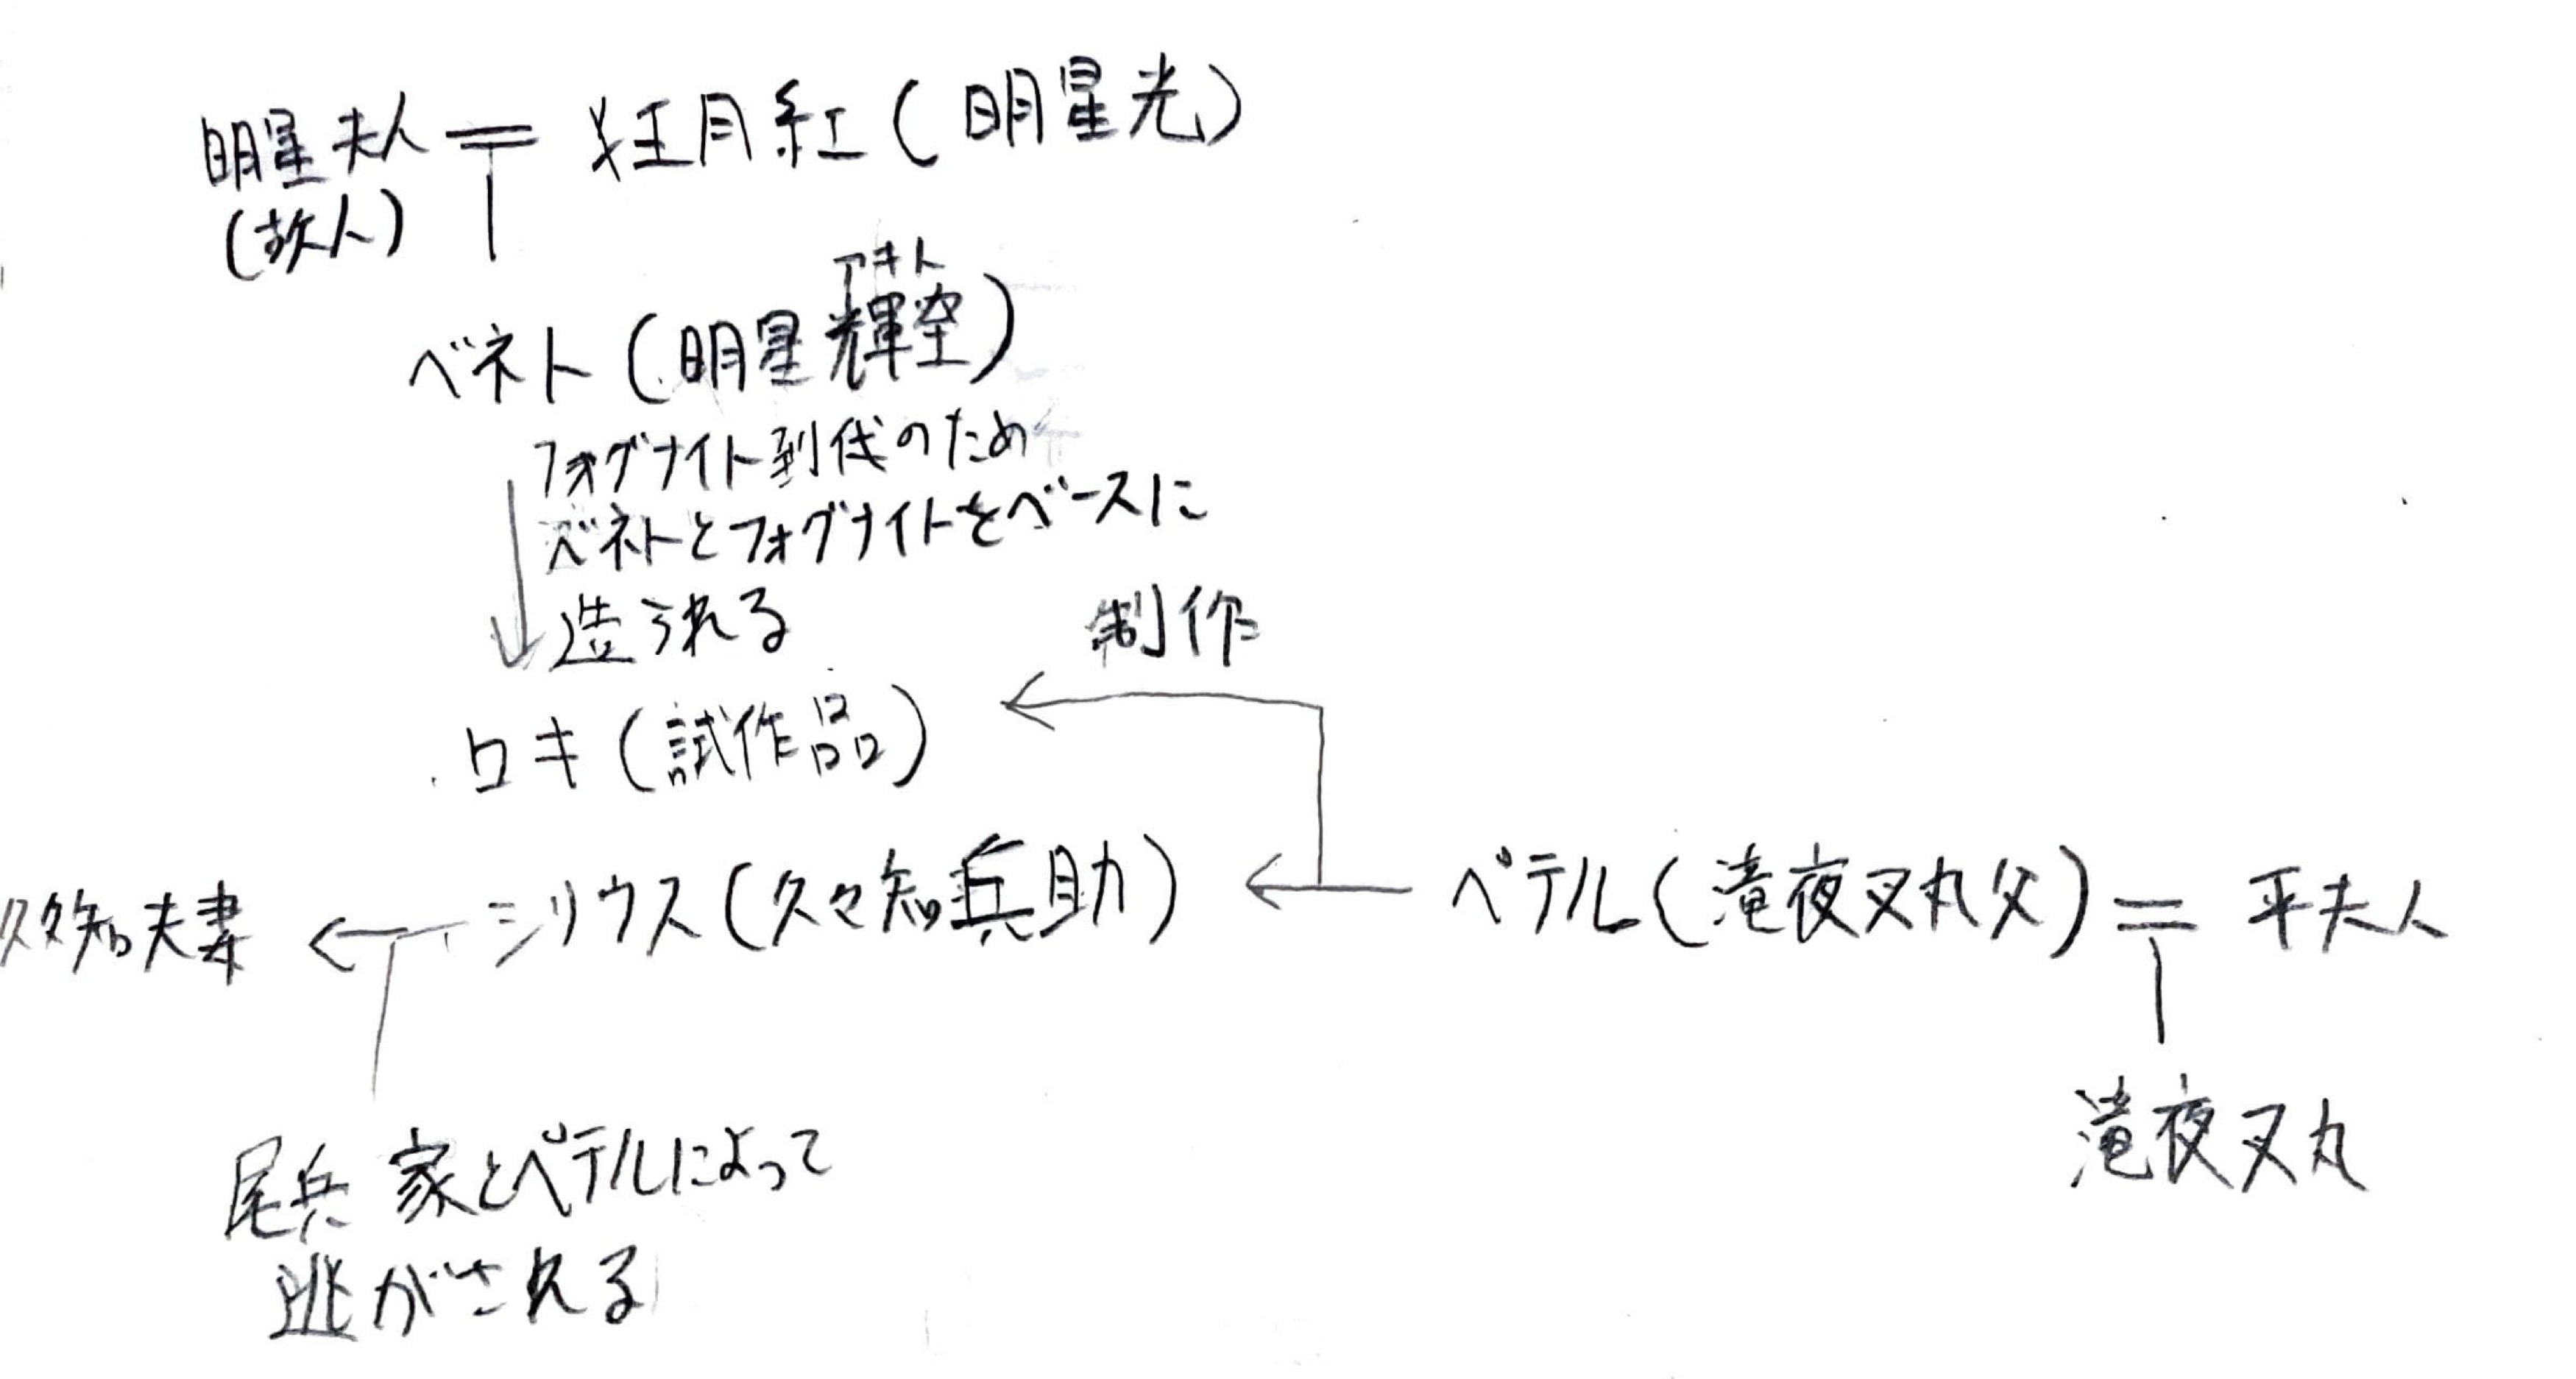 明星夫人 狂月紅(明星光)
(故人)
アキト
ベネト(明星輝空)
フォグナイト到伐のため
ベネトとフォグナイトをベースに
造られる
制作
ロキ(試作品)
久々知夫妻 シリウス(久々知兵助) ペテル(滝夜叉丸父) 平夫人
滝夜叉丸
尾兵家とペテルによって
逃がされる